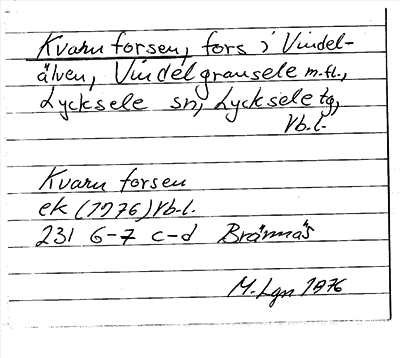 Kvarnforsen, fors i Vindel-
älven, Vindelgransele m.fl.,
Lycksele sn, Lycksele tg,
Vb.l.
Kvarnforsen
ek (1976) Vb.l.
231 6-7 c-d Brännäs
M. Lgn 1976